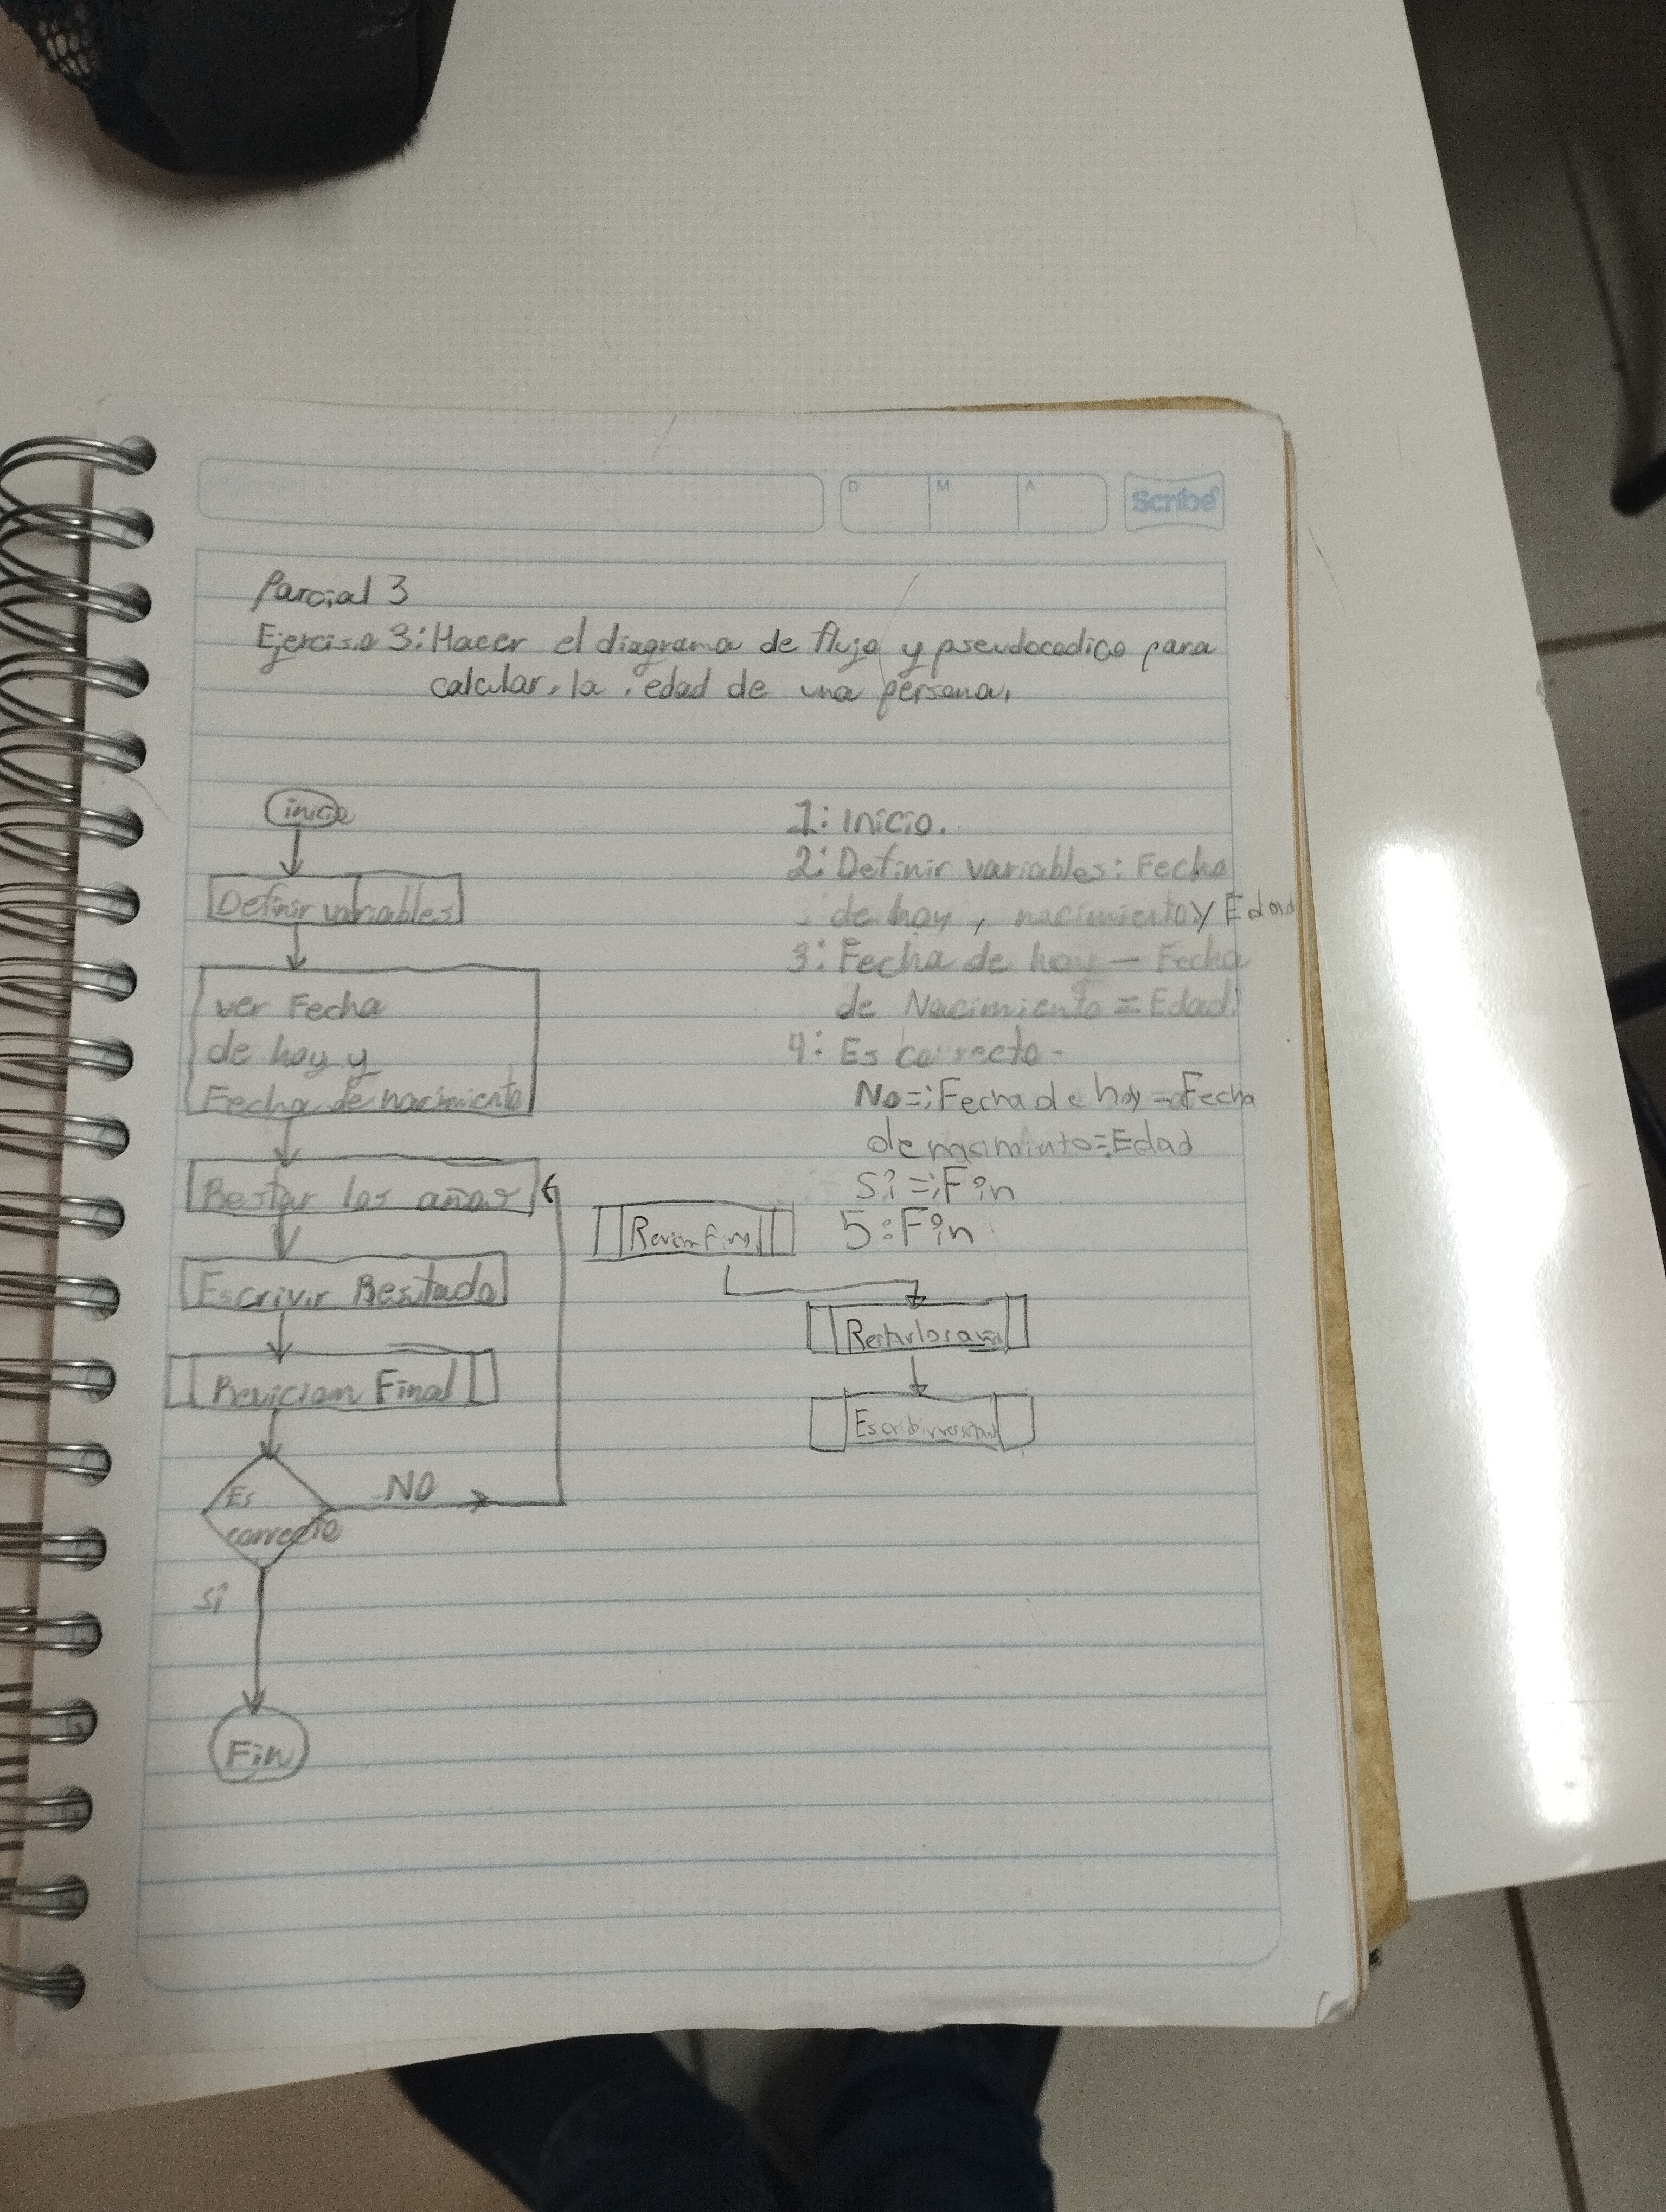 D M A Scribe
Parcial 3
Ejerciso 3: Hacer el diagrama de flujo y pseudocodico para
calcular la edad de una persona.
inicio
Definir variables
ver Fecha
de hoy y
Fecha de nacimiento
Restar los años
Escrivir Resutado
Reviciom Final
Es
correcto
NO
si
Fin
1: Inicio.
2: Definir variables: Fecha
de hoy, nacimiento y Edad
3: Fecha de hoy - Fecha
de Nacimiento = Edad
4: Es correcto -
No=; Fecha de hoy - Fecha
de nacimiento = Edad
Si =; Fin
5: Fin
Restar los